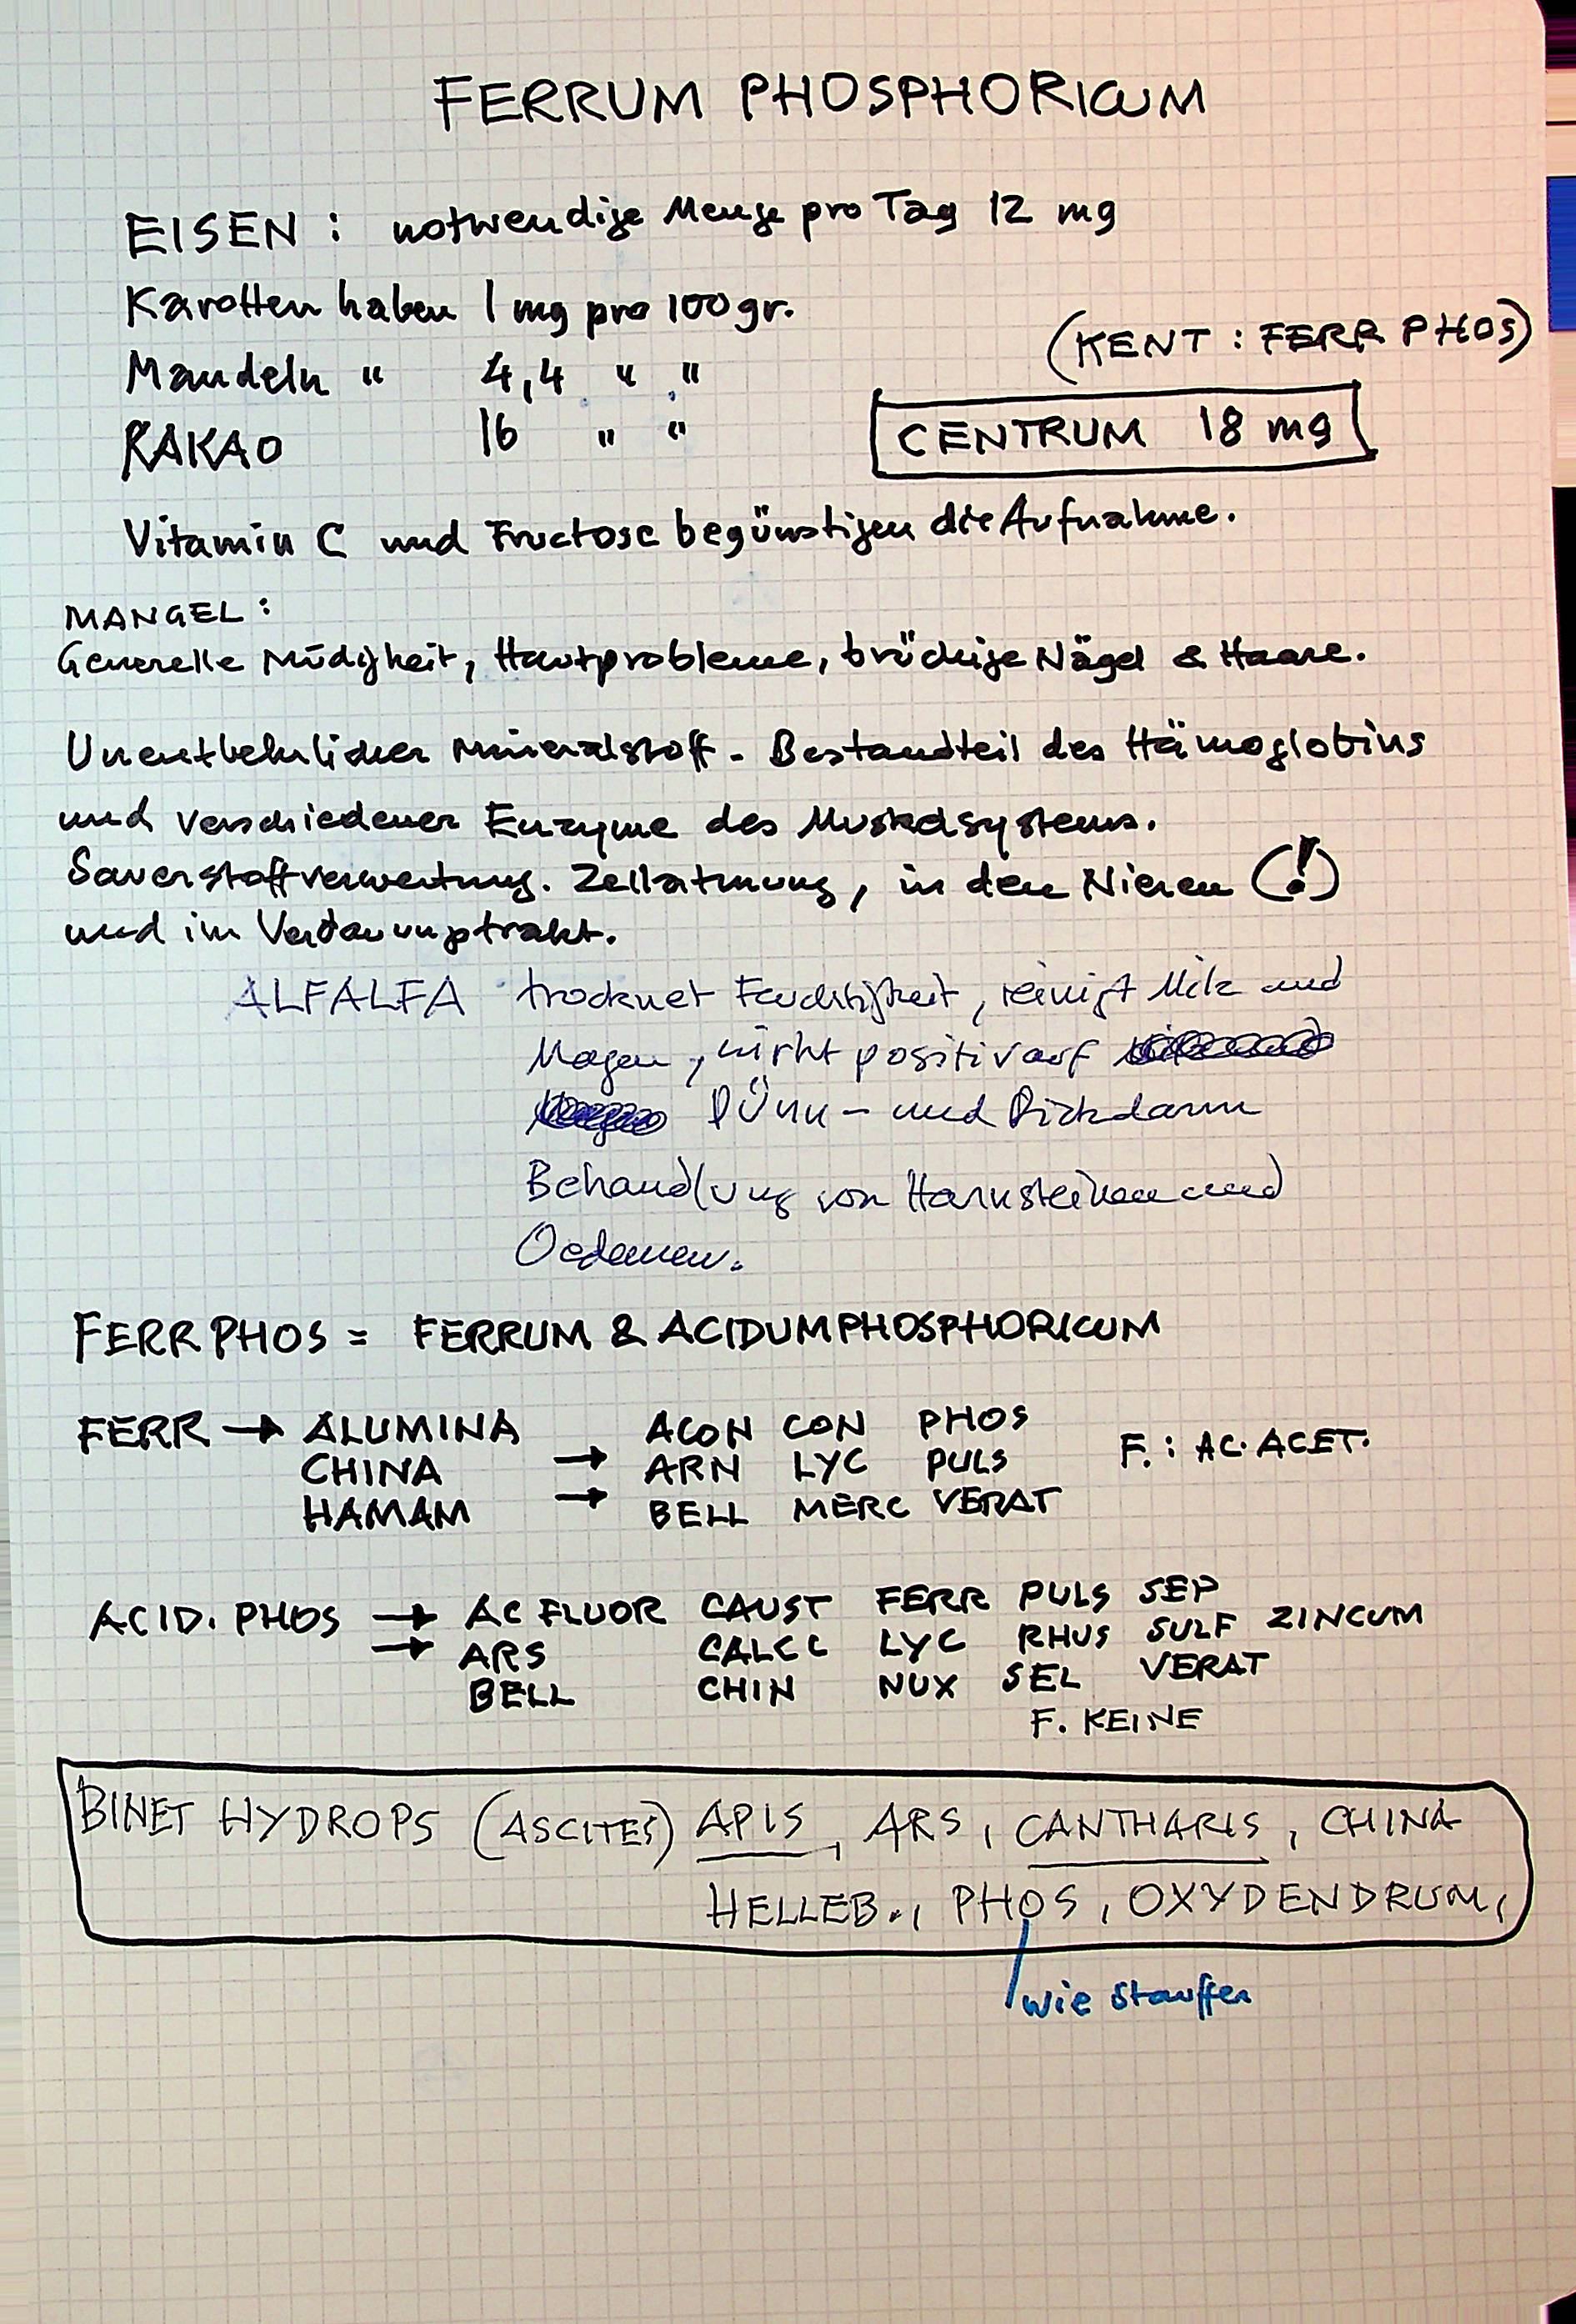 FERRUM PHOSPHORICUM
EISEN : notwendige Menge pro Tag 12 mg
Karotten haben 1 mg pro 100 gr.
(KENT : FERR PHOS)
Mandeln " 4,4 " "
KAKAO 16 " "
CENTRUM 18 mg
Vitamin C und Fructose begünstigen die Aufnahme.
MANGEL :
Generelle Müdigkeit, Hautprobleme, brüchige Nägel & Haare.
Unentbehrlicher Mineralstoff - Bestandteil des Hämoglobins
und verschiedener Enzyme des Muskelsystems.
Sauerstoffverwertung. Zellatmung, in den Nieren (!)
und im Verdauungstrakt.
ALFALFA trocknet Feuchtigkeit, reinigt Milz und
Magen, wirkt positiv auf
Dünn- und Dickdarm
Behandlung von Harnsteinen und
Oedemen.
FERR PHOS = FERRUM & ACIDUM PHOSPHORICUM
FERR → ALUMINA ACON CON PHOS
CHINA → ARN LYC PULS F. : AC. ACET.
HAMAM → BELL MERC VERAT
ACID. PHOS → AC FLUOR CAUST FERR PULS SEP
→ ARS CALC C LYC RHUS SULF ZINCUM
BELL CHIN NUX SEL VERAT
F. KEINE
BINET HYDROPS (ASCITES) APIS, ARS, CANTHARIS, CHINA
HELLEB., PHOS, OXYDENDRUM,
wie Stauffer